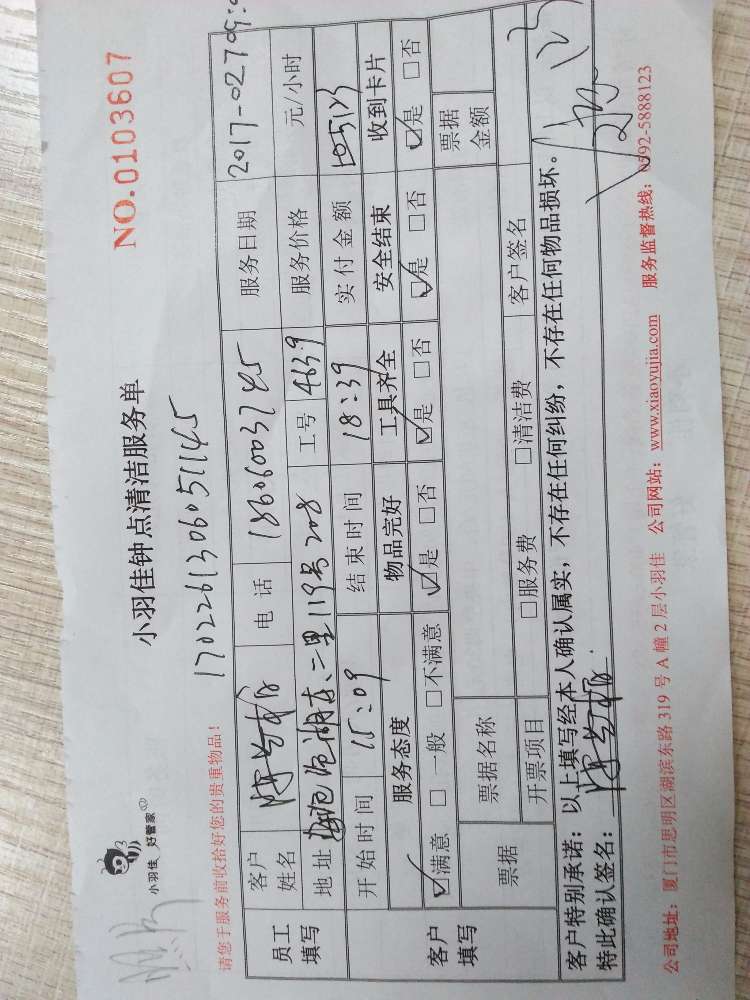 小羽佳 好管家
小羽佳钟点清洁服务单
NO.0103607
请您于服务前收拾好您的贵重物品！
1702261306051145
员工填写 客户姓名 电话 18606003745 服务日期 2017-02
地址 二里119号208 工号 4639 服务价格 元/小时
开始时间 15:09 结束时间 18:39 实付金额
客户填写 服务态度 物品完好 工具齐全 安全结束 收到卡片
☑满意 □一般 □不满意 ☑是 □否 ☑是 □否 ☑是 □否 ☑是 □否
票据 票据名称 票据金额
开票项目 □服务费 □清洁费 客户签名
客户特别承诺：以上填写经本人确认属实，不存在任何纠纷，不存在任何物品损坏。
特此确认签名：
公司地址：厦门市思明区湖滨东路 319 号 A 幢 2 层小羽佳 公司网站：www.xiaoyujia.com 服务监督热线：0592-5888123